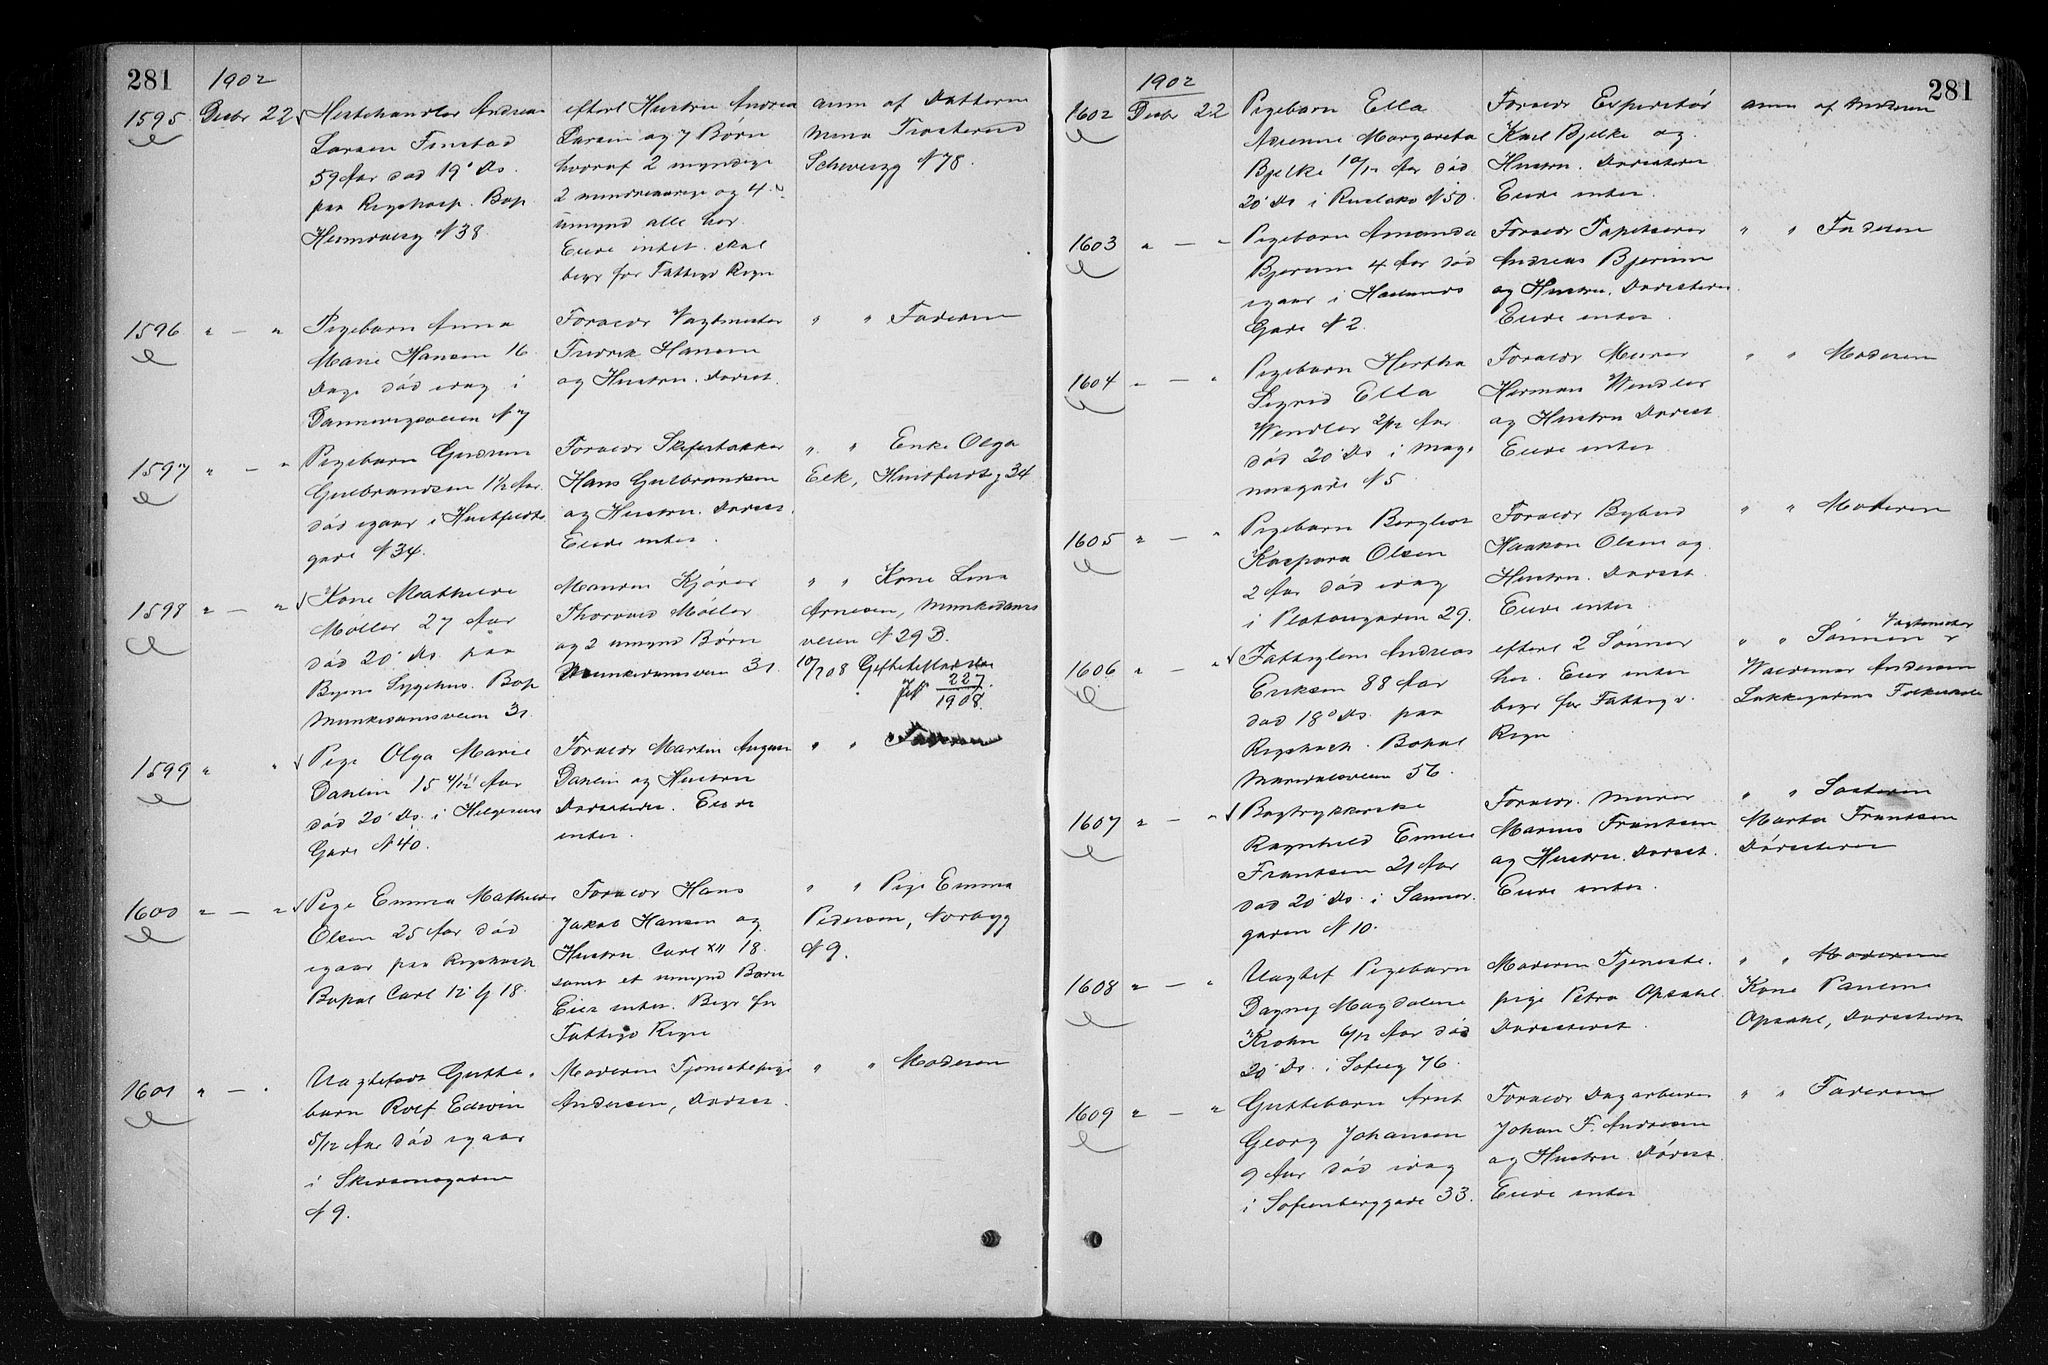 281
1902
1595 Desbr 22 Hestehandler Andreas
Larsen Finstad
59 Aar död 19' Ds.
paa Rigshosp. Bop
N 38
efterl Hustru Andrea
Larsen og 7 Børn
hvoraf 2 myndige
2 mindreaarige og 4
umynd alle her.
Eiede intet skal
begr for Fattigv Regn
anm af Datteren
Schweizg N 78.
1596 " — " Pigebarn Anna
Marie Hansen 16
Dage död idag i
Dannevigsveien N 7
Foraeldr Vagtmester
Fredrik Hansen
og Hustru. Dödsst.
" " Faderen
1597 " — " Pigebarn Gudrun
Gulbrandsen 1 1/2 Aar
död igaar i Huitfeldts
gade N 34.
Foraeldr
Hans Gulbrandsen
og Hustru. Dödsst.
Eiede intet.
" " Enke Olga
Eek, Huitfeldtsg 34
1598 " — " Kone Mathilde
Möller 27 Aar
död 20' Ds. paa
Byens Sygehus. Bop
Munkedamsveien 31.
Manden Kjörer
Thorvald Möller
og 2 umynd Börn
Munkedamsveien 31
" " Kone Lina
Arnesen, Munkedams
veien N 29 B.
227
1908.
1599 " " Pige Olga Marie
Dahlin 15 4/12 Aar
död 20' Ds. i Helgesens
Gade N 40.
Foraeldr Martin August
Dahlin og Hustru
Dödsstedet. Eiede
intet.
" " Faderen
1600 " — " Pige Emma Mathilde
Olsen 25 Aar död
igaar paa Rigshosp
Bopæl Carl 12' G 18.
Foraeldr Hans
Jakob Hansen og
Hustru Carl XII 18.
samt et umynd Barn
Eier intet. Begr for
Fattigv Regn
" " Pige Emma
Pedersen, Norbyg
N 9.
1601 " — " Uægtefødt Gutte
barn Rolf Edwin
5/12 Aar död igaar
i
N 9.
Moderen Tjenestepige
Andersen, Dödsst.
" " Moderen
281
1902
1602 Desbr 22 Pigebarn Ella
Margareta
Bjelke 10/12 Aar död
20' Ds i Ruseløkv N 50.
Foraeldr Expeditör
Karl Bjelke og
Hustru. Dödsstedet
Eiede intet.
anm af Moderen
1603 " — " Pigebarn Amanda
Bjerum 4 Aar död
igaar i
Gade N 2.
Foraeldr Tapetserer
Andreas Bjerum
og Hustru. Dödsstedet.
Eiede intet.
" " Faderen
1604 " — " Pigebarn Hertha
Sigrid Ella
Wendler 2/12 Aar
död 20' Ds i Mag
nusgade N 5.
Foraeldr Murer
Herman Wendler
og Hustru Dödsst.
Eiede intet.
" " Moderen
1605 " — " Pigebarn Borghild
Kaspara Olsen
2 Aar död idag
i Platougaden 29.
Foraeldr Bybud
Haakon Olsen og
Hustru. Dödsst.
Eiede intet.
" " Moderen
1606 " — " Fattiglem Andreas
Eriksen 88 Aar
död 18' Ds. paa
Rigshosp. Bopæl
Maridalsveien 56.
efterl 2 Sönner
her. Eier intet
begr for Fattigv.
Regn
" " Sönnen Vagtmester
Waldemar Andersen
Lakkegadens Folkeskole
1607 " — " Bogtrykkerske
Ragnhild Emilie
Frantsen 21 Aar
död 20' Ds. i Sanner
gaden N 10.
Foraeldr. Murer
Marius Frantsen
og Hustru. Dödsst.
Eiede intet.
" " Søsteren
Marta Frantsen
Dödsstedet
1608 " — " Uægtef Pigebarn
Dagny Magdalene
Krohn 6/12 Aar död
20' Ds. i Sofieg 76.
Moderen Tjeneste
pige Petra Opsahl.
Dödsstedet.
" " Moderen
Kone Pauline
Opsahl, Dödsstedet
1609 " — " Guttebarn Arnt
Georg Johansen
9 Aar död idag
i Sofienberggade 33.
Foraeldr Dagarbeider
Johan F. Andresen
og Hustru. Dödsst.
Eiede intet
" " Faderen